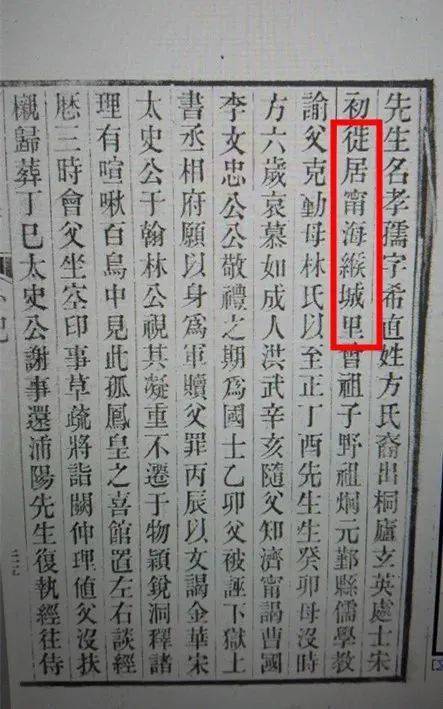 先生名孝孺字希直姓方氏裔出桐廬玄英處士宋
初徙居甯海緱城里曾祖子野祖烱元鄞縣儒學教
諭父克勤母林氏以至正丁酉先生生癸卯母沒時
方六歲哀慕如成人洪武辛亥隨父知濟甯謁曹國
李文忠公公敬禮之期為國士乙卯父被誣下獄上
書丞相府願以身為軍贖父罪丙辰以文謁金華宋
太史公于翰林公視其凝重不遷于物穎銳洞釋諸
理有喧啾百鳥中見此孤鳳皇之喜館置左右談經
歷三時會父坐空印事草疏將詣闕仲理值父沒扶
櫬歸葬丁巳太史公謝事還浦陽先生復執經往侍